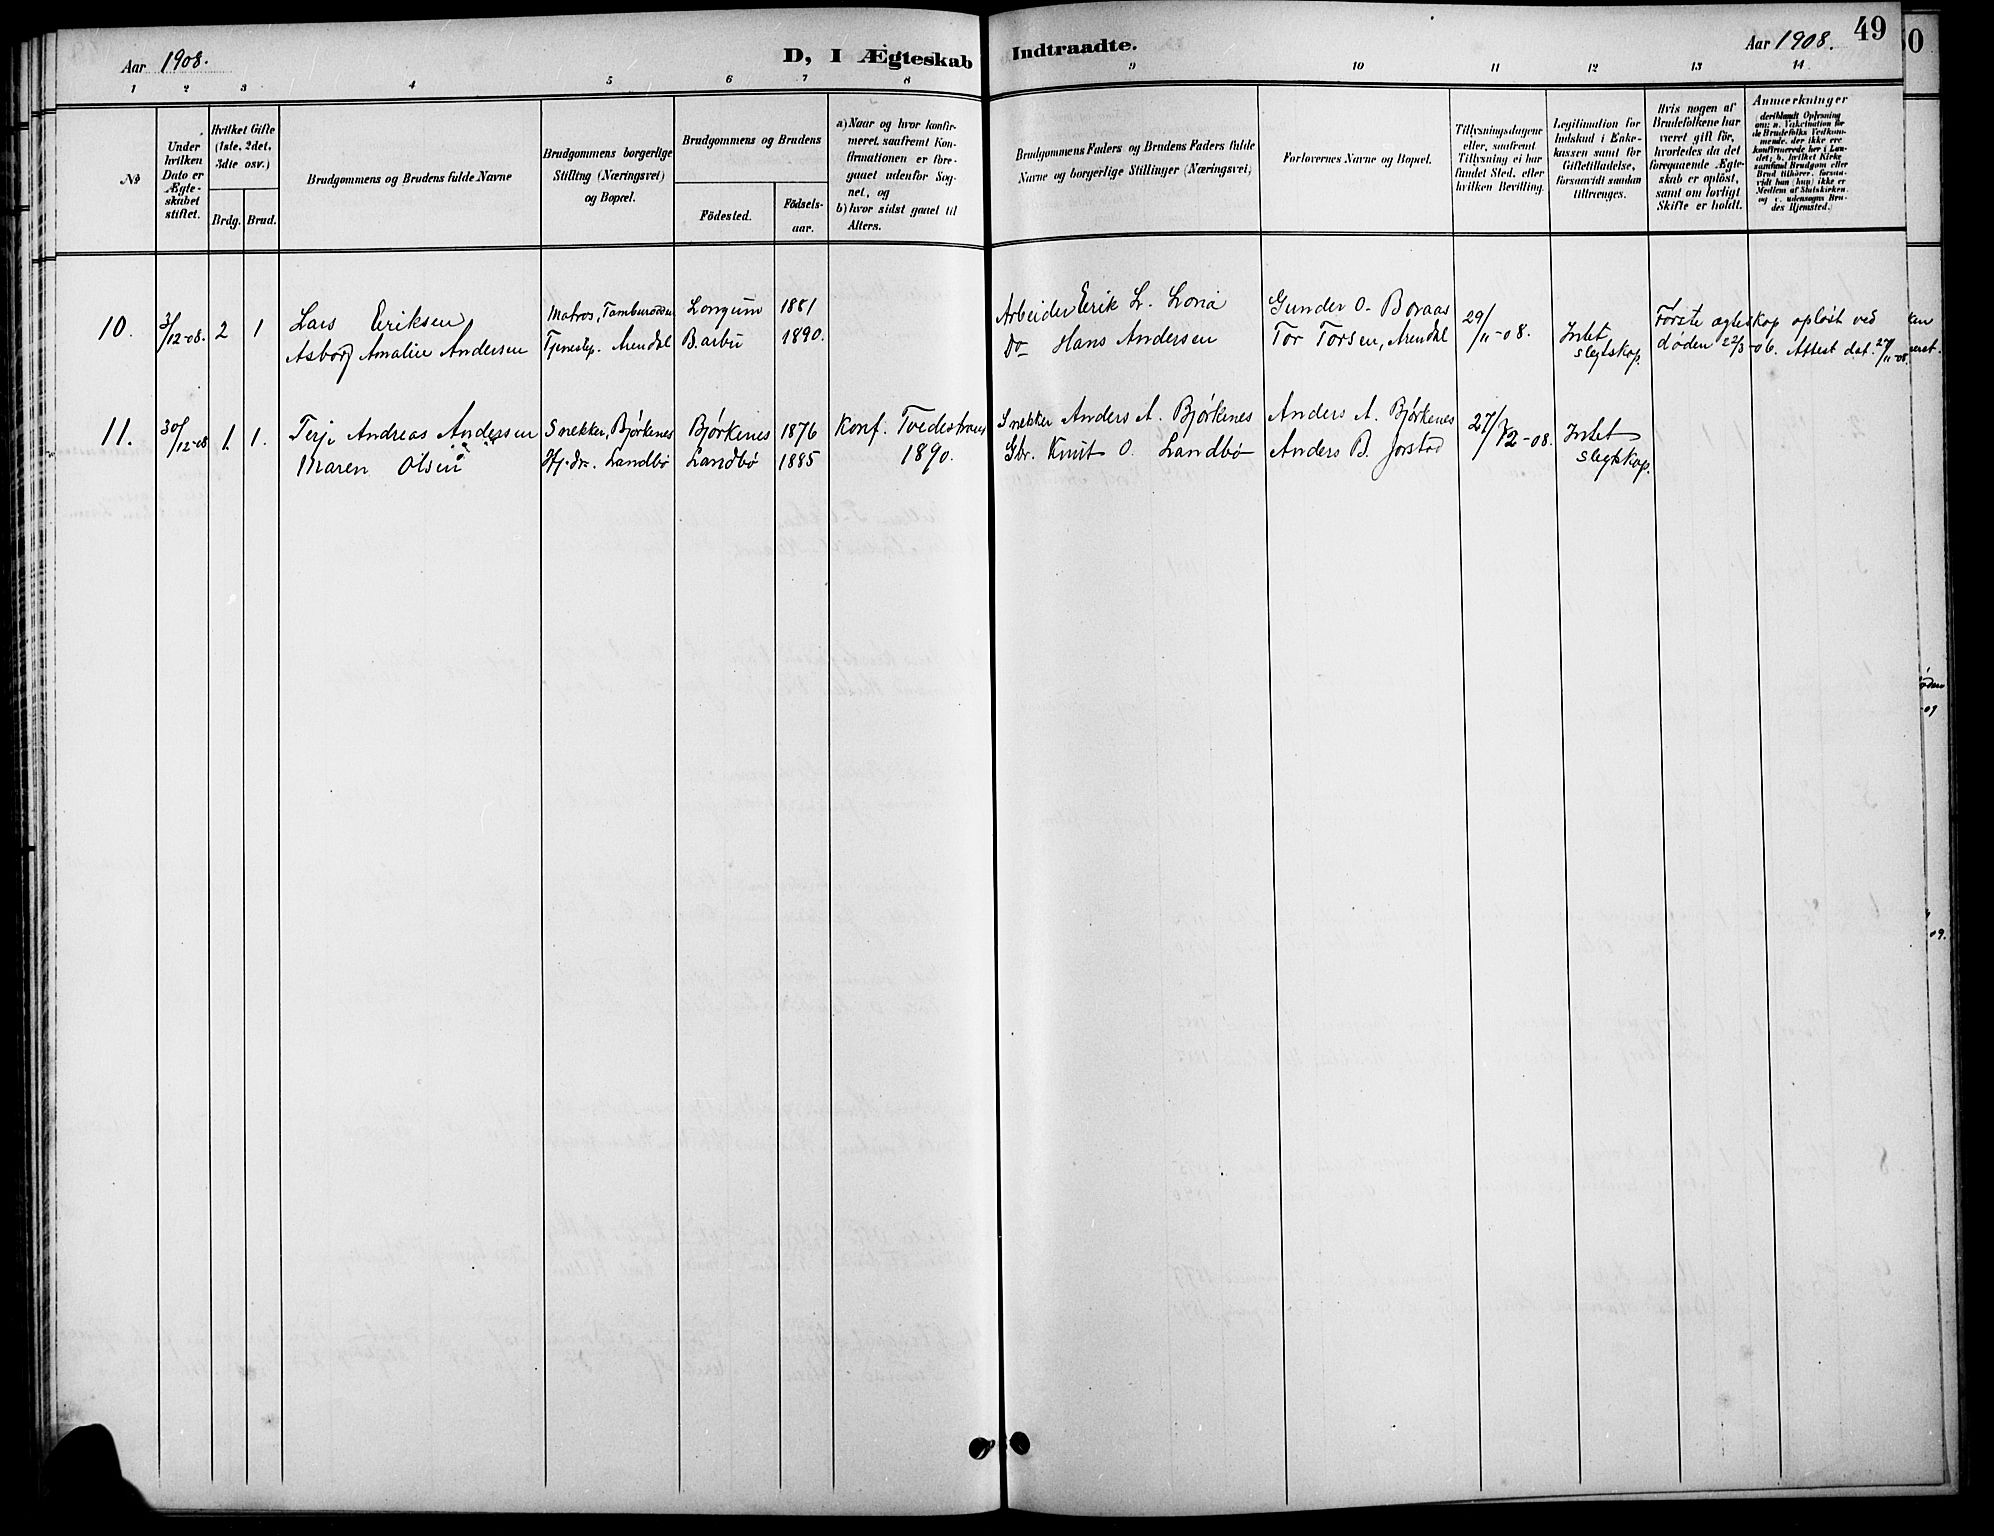 Aar 1908.
D, I Ægteskab Indtraadte.
Aar 1908. 49
1 2 3 4 5 6 7 8 9 10 11 12 13 14
No
Under hvilken Dato er Ægteskabet stiftet.
Hvilket Gifte (1ste, 2det, 3die osv.)
Brdg. Brud.
Brudgommens og Brudens fulde Navne
Brudgommens borgerlige Stilling (Næringsvei) og Bopæl.
Brudgommens og Brudens
Födested. Födsels-aar.
a) Naar og hvor konfirmeret, saafremt Konfirmationen er foregaaet udenfor Sognet, og
b) hvor sidst gaaet til Alters.
Brudgommens Faders og Brudens Faders fulde Navne og borgerlige Stillinger (Næringsvei)
Forlovernes Navne og Bopæl.
Tillysningsdagene eller, saafremt Tillysning ei har fundet Sted, efter hvilken Bevilling.
Legitimation for Indskud i Enkekassen samt for Giftetilladelse, forsaavidt saadan tiltrænges.
Hvis nogen af Brudefolkene har været gift för, hvorledes da det foregaaende Ægteskab er oplöst, samt om lovligt Skifte er holdt.
Anmerkninger deriblandt Oplysning om: a. Vakcination for de Brudefolks Vedkommende, der ikke ere konfirmerede her i Landet; b. hvilket Kirkesamfund Brudgom eller Brud tilhörer, forsaavidt han (hun) ikke er Medlem af Statskirken, og c. udensogns Brudes Hjemsted.)
10. 3/12-08. 2 1 Lars Eriksen Matros, Longum 1881 Arbeider Erik L. Gunder O. Boraas 29/11-08. Intet Første ægteskap opløst ved
Asborg Amalie Andersen Tjenestep. Arendal Barbu 1890. Do Hans Andersen Tor Torsen, Arendal slegtskap. døden 22/3-06. Attest dat. 27/11-08.
11. 30/12-08 1. 1. Terje Andreas Anderssen Snekker, Bjørkenes Bjørkenes 1876 Konf. Tvedestrand Snekker Anders A. Bjørkenes Anders A. Bjørkenes 27/12-08. Intet
Maren Olsen Landbø Landbø 1885 1890. Gbr. Knut O. Landbø Anders B. Jorstad slegtskap.